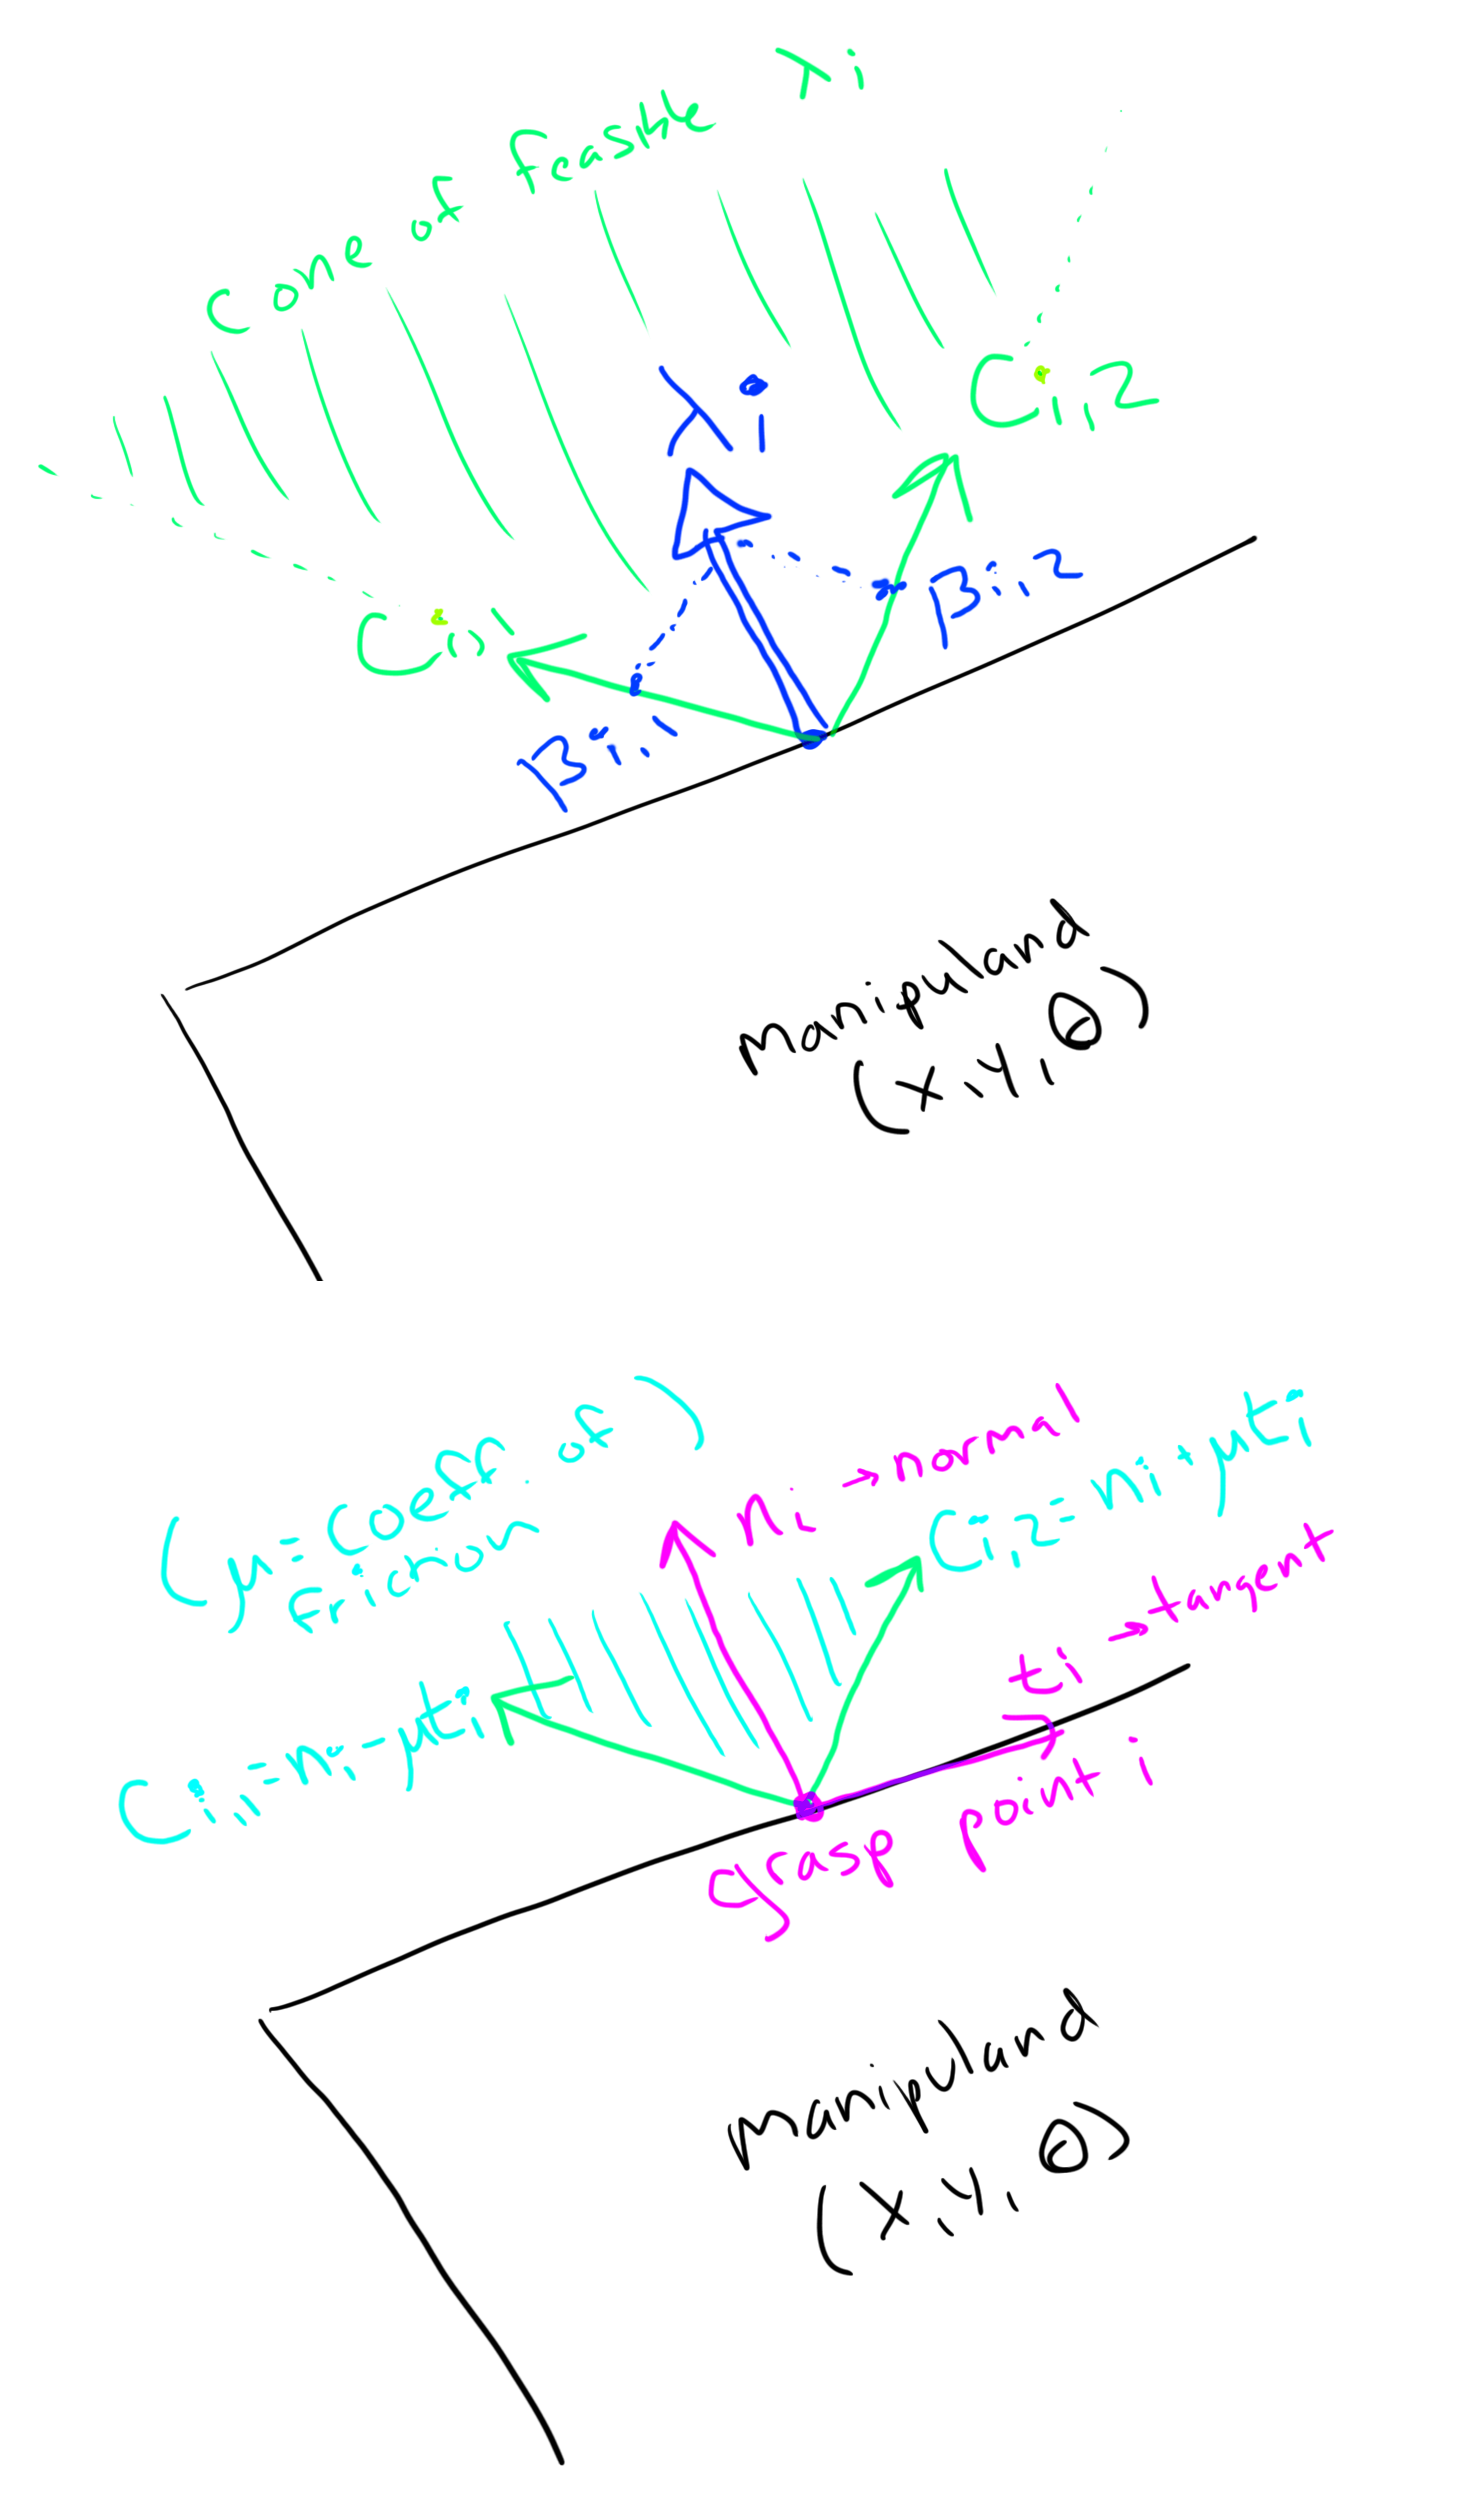 Cone of feasible λi
λi
Ci2
Ci1
Bi2
Bi1
Manipuland
(x, y, θ)
(μ = coeff. of
friction)
ni → normal
Ci2 = ni + μti
ti → tangent
Ci1 = ni - μti
grasp point i
Manipuland
(x, y, θ)